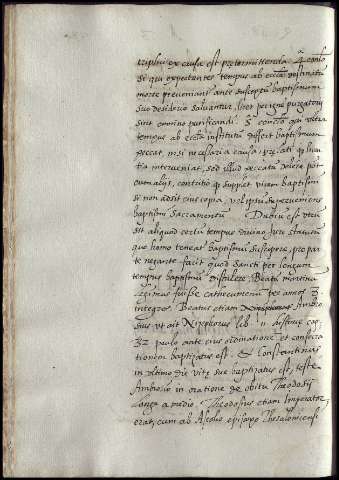 triplici ex causa est pretermittenda. 4 conclo
si qui expectantes tempus ab ecclā destinatū
morte preveniant ante susceptū baptismum
suo desiderio salvantur, licet per ignē purgatorij
sint omnino purificandi. 5 conclo qui ultra
tempus ab ecclā institutū differt baptismum
peccat, nisi necessaria causa,
tia interveniat, sed illud peccatū delere pōt
cum alijs, contritio q̄ supplet vicem baptismi
si non adsit eius copia, vel ipsū superveniens
baptismi Sacramentū. Dubiū est utrū
sit aliquod certū tempus divino jure statutū
quo homo teneat baptismū suscipere, pro par
te negante facit quod sancti per longum
tempus baptismū distulere, Beatū martinū
legimus fuisse cathecumenū per annos 3
integros. Beatus etiam Ambro
sius ut ait Nizephorus lib. 11 histriæ cap.
32 paulo ante eius ordinationē et consecra
tionem baptizatus est. & Constantinus
in ultimo die vitę suę baptizatus est, teste
Ambrosio in oratione de obitu Theodosij
longe a medio. Theodosius etiam Imperator
eraticum ab Ascolio episcopo Thesalonicensi